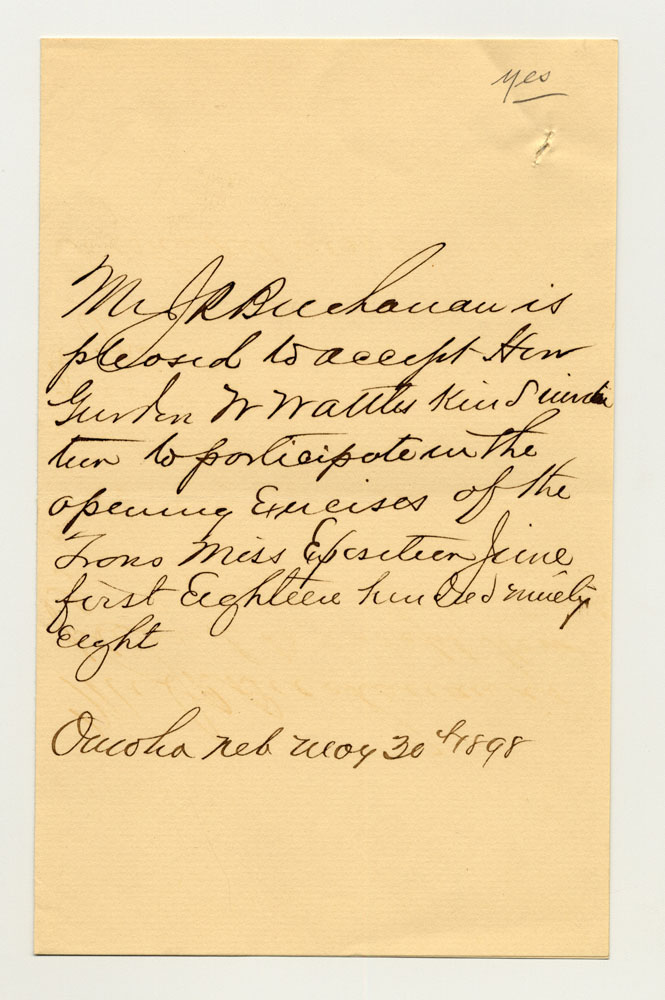 yes
Mr J R Buchanan is
pleased to accept Hon
Gurdon W Wattles Kind invita
tion to participate in the
opening Exercises of the
Trans Miss Exposition June
first Eighteen hundred ninety
eight
Omaha Neb May 30th 1898